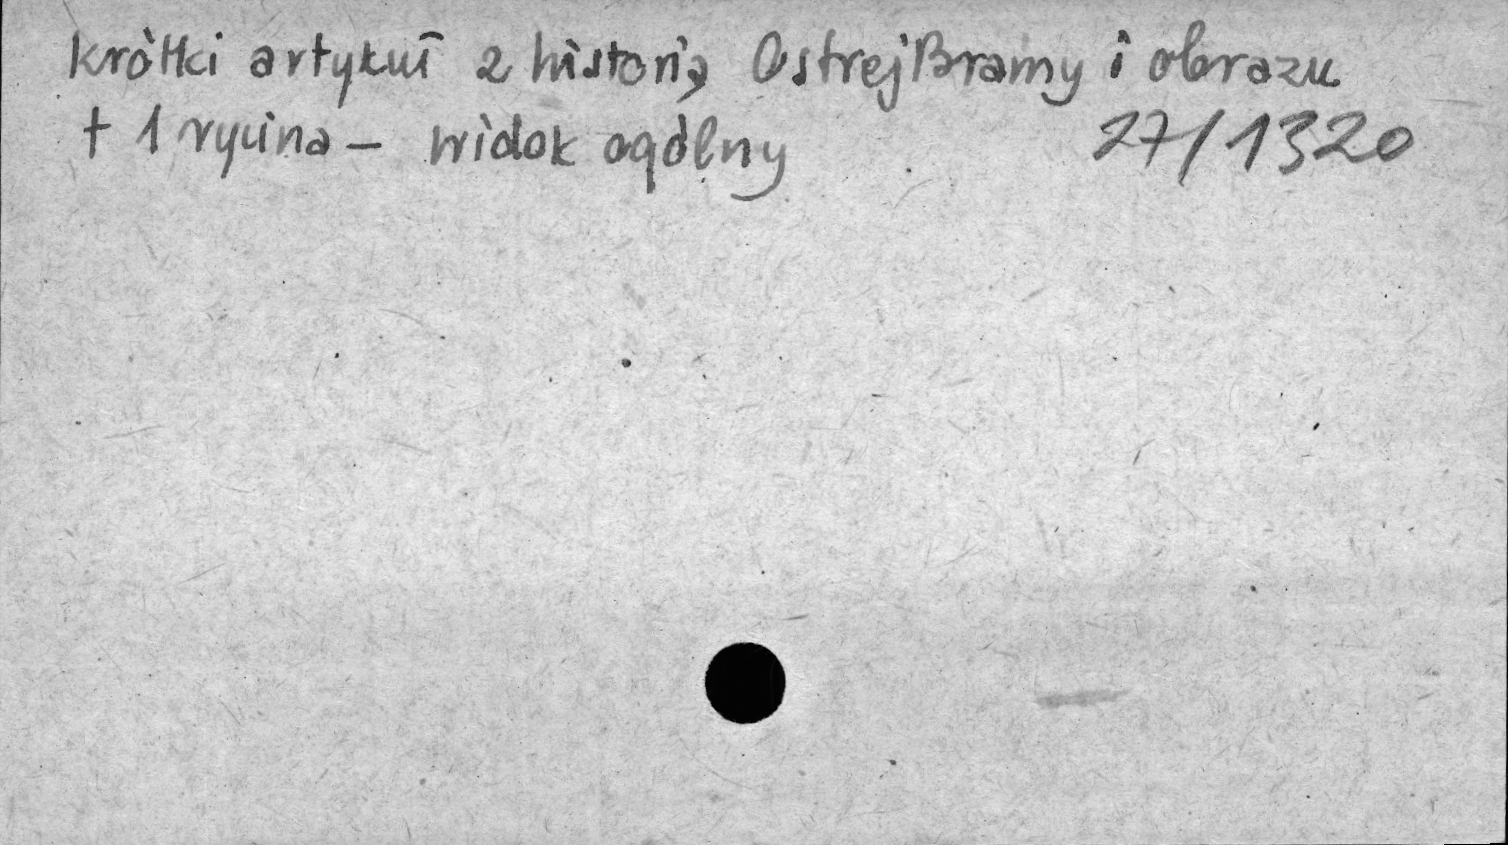 krótki artykuł z historią Ostrej Bramy i obrazu
+ 1 rycina — widok ogólny 27/1320